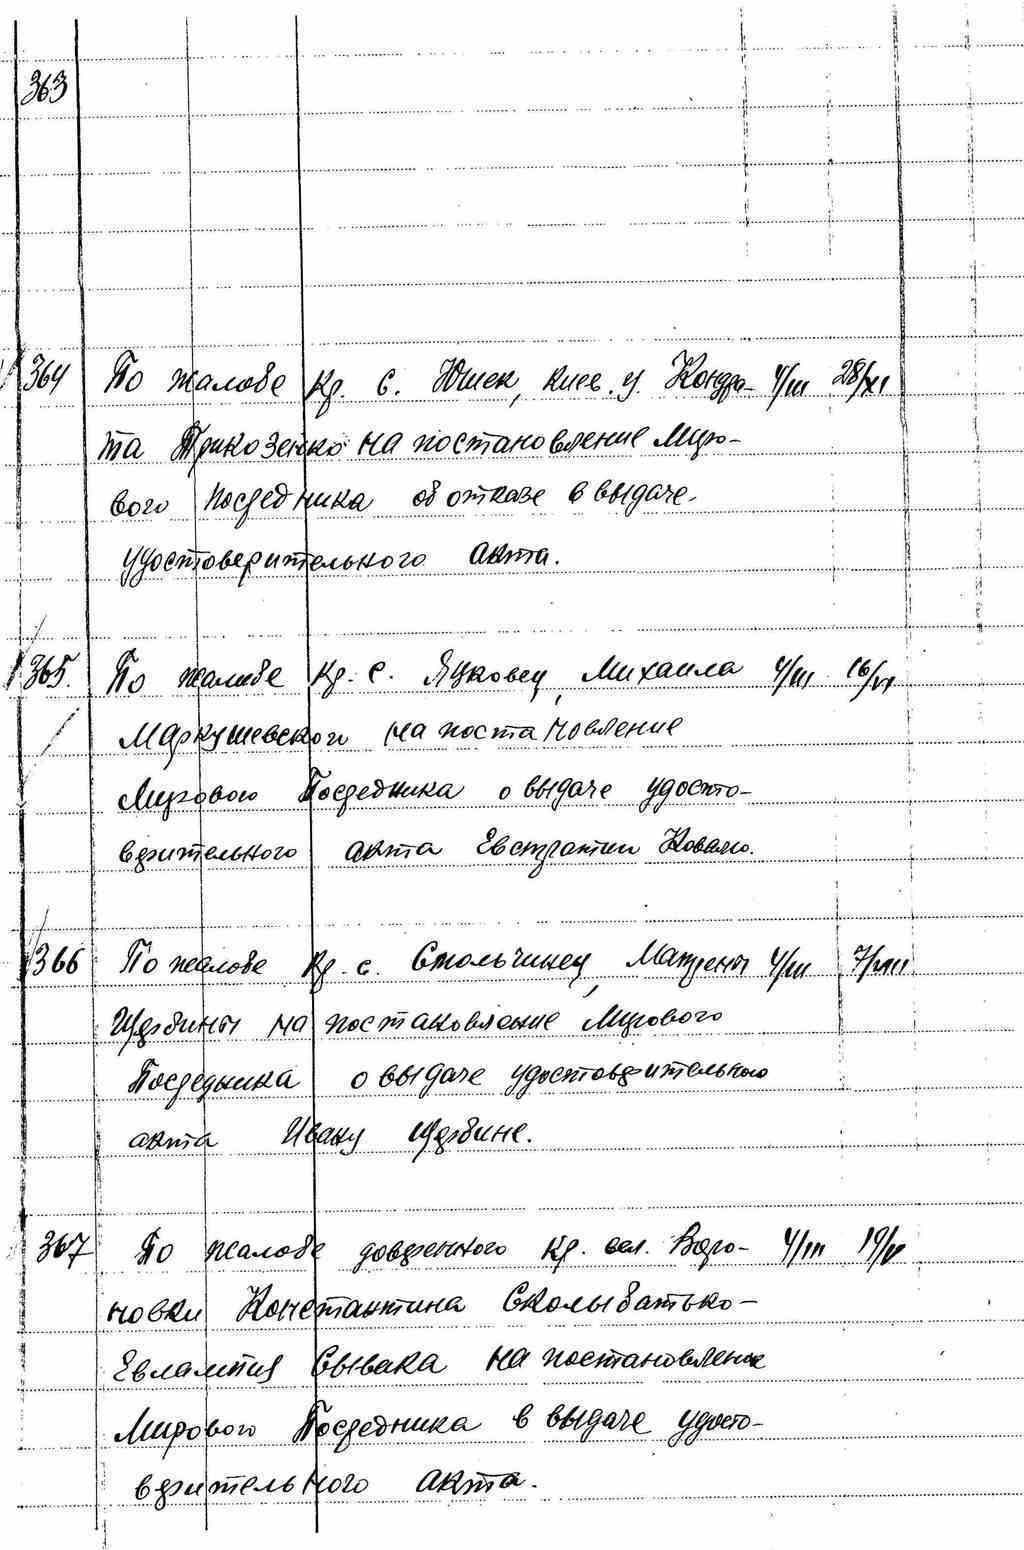 363
364 По жалобе кр. с. Юшек, киев. у. Кондра- 4/III 28/XI
та Трикозенко на постановление Миро-
вого Посредника об отказе в выдаче
удостоверительного акта.
365. По жалобе кр. с. Яцковец, Михаила 4/III 16/VI
Маркушевского на постановление
Мирового Посредника о выдаче удосто-
верительного акта Евстратии Ковалю.
366 По жалобе кр. с. Стольчинец, Матрены 4/III 7/VIII
Щербины на постановление Мирового
Посредника о выдаче удостоверительного
акта Ивану Щербине.
367 По жалобе доверенного кр. сел. Воро- 4/III 19/VI
новки Константина Сколыбатько-
Евлампия Свывака на постановление
Мирового Посредника в выдаче удосто-
верительного акта.